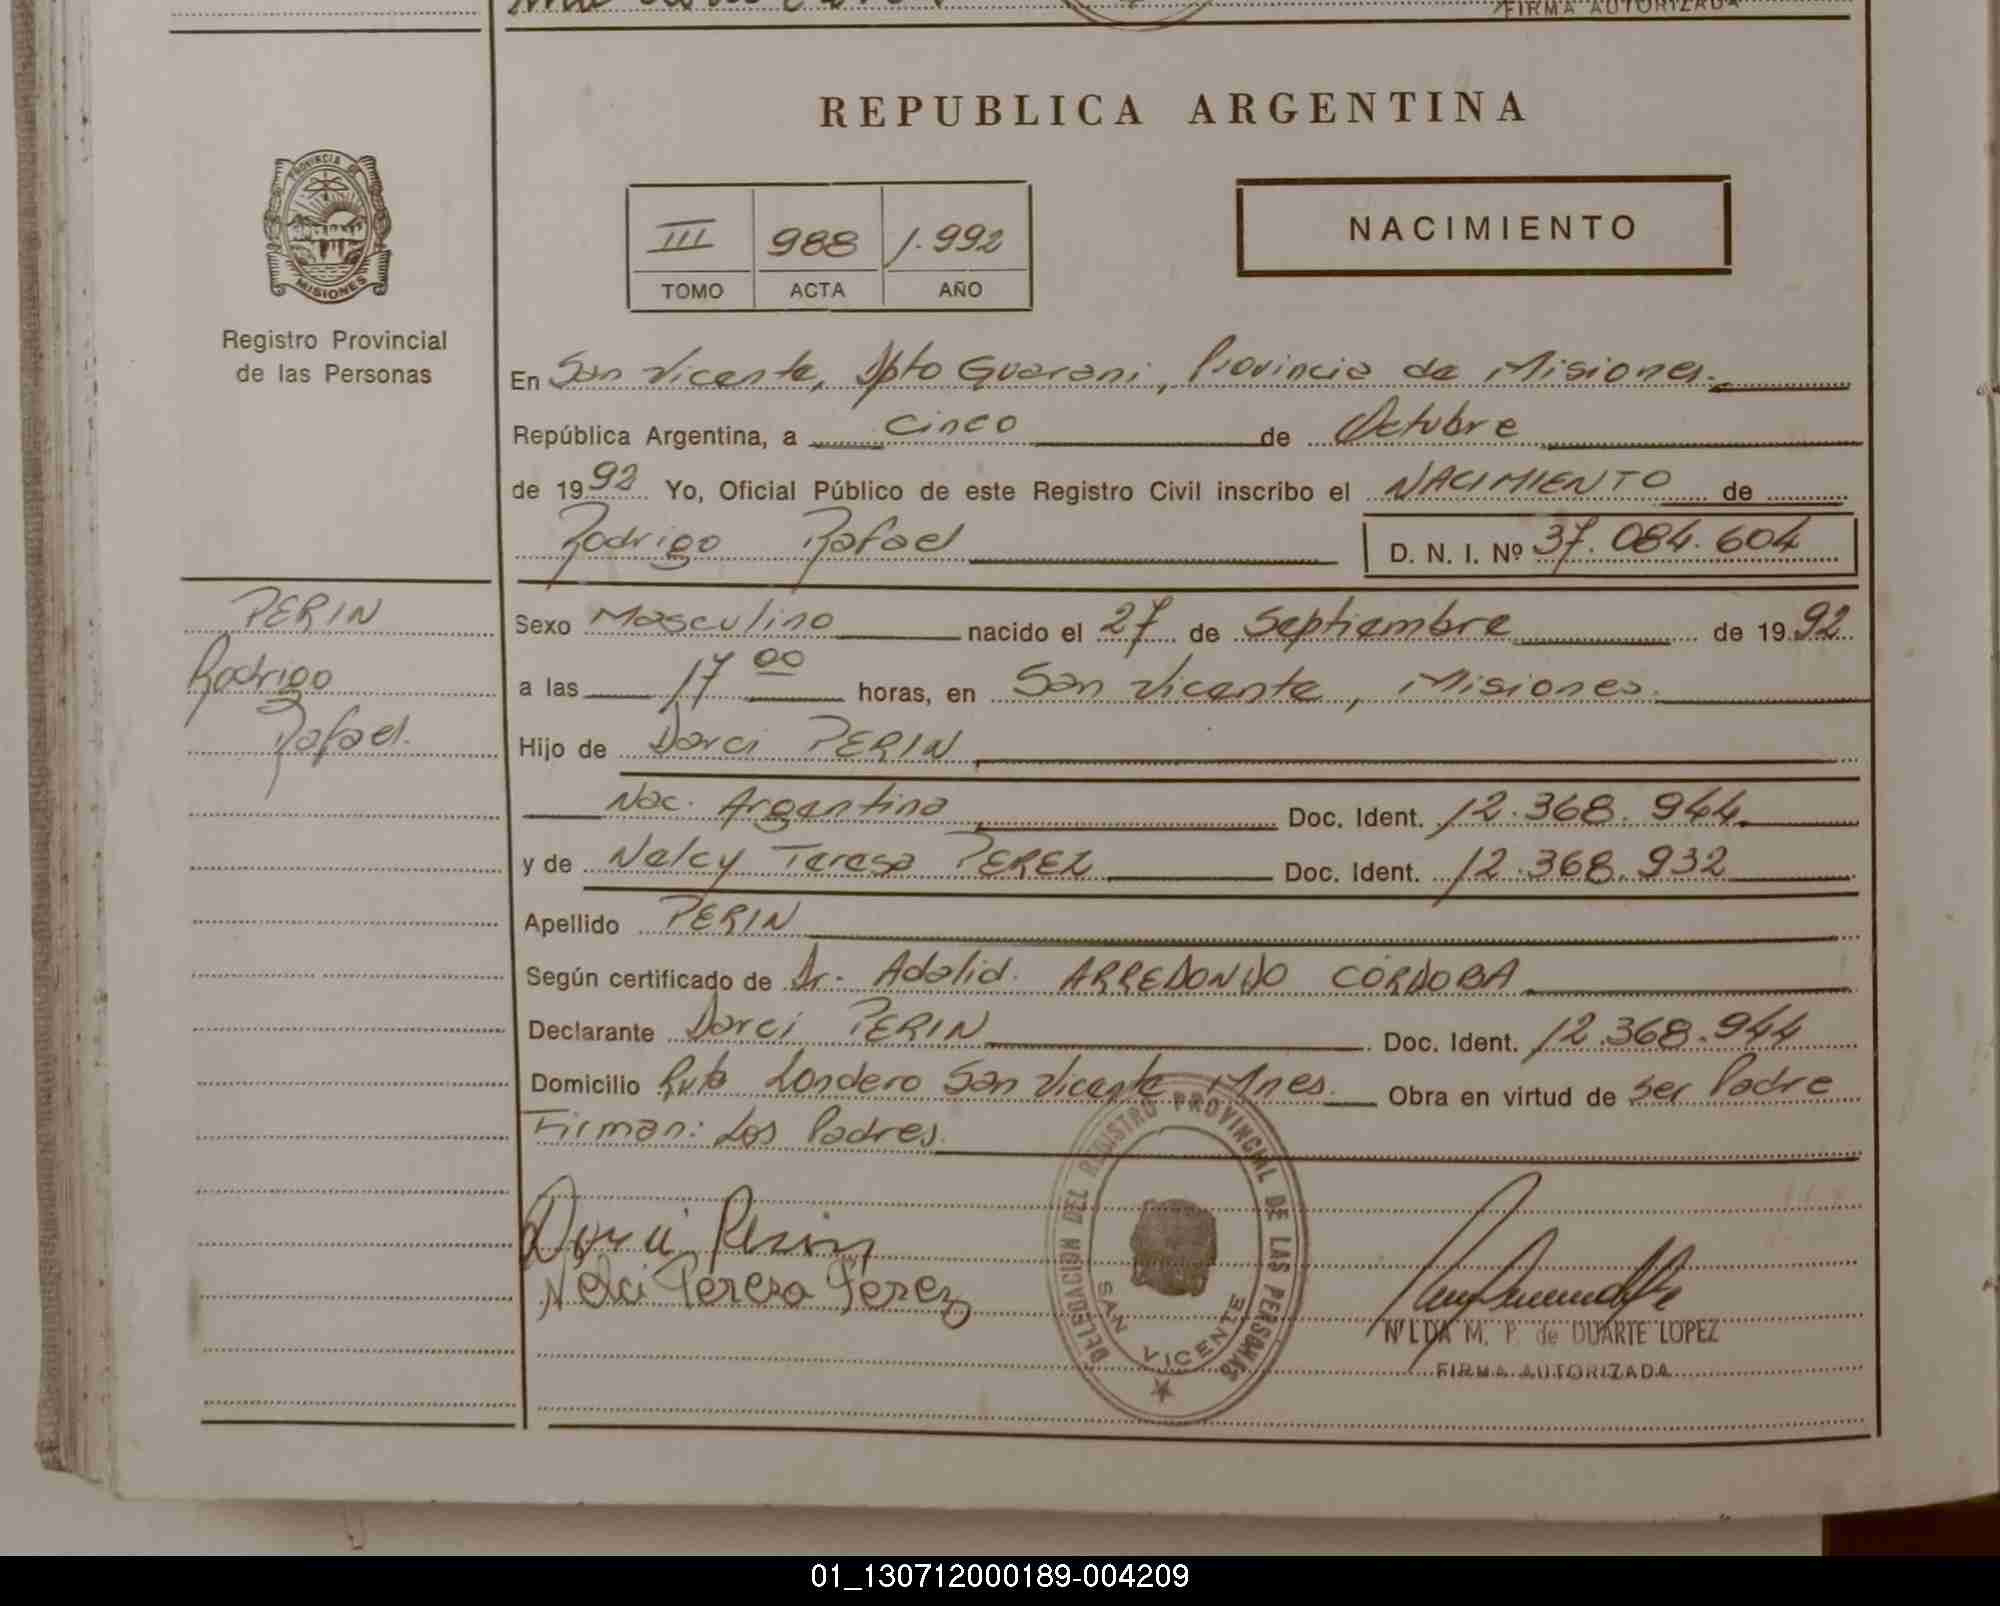 FIRMA AUTORIZADA
REPUBLICA ARGENTINA
PROVINCIA DE
MISIONES
Registro Provincial
de las Personas
III 988 1.992
TOMO ACTA AÑO
NACIMIENTO
En San Vicente, Dpto Guarani, Provincia de Misiones.
República Argentina, a cinco de Octubre
de 1992 Yo, Oficial Público de este Registro Civil inscribo el NACIMIENTO de
Rodrigo Rafael D. N. I. Nº 37.084.604
PERIN
Rodrigo
Rafael.
Sexo Masculino nacido el 27 de Septiembre de 1992
a las 17 00 horas, en San Vicente, Misiones.
Hijo de Darci PERIN
Nac. Argentina Doc. Ident. 12.368.944
y de Nelcy Teresa PEREZ Doc. Ident. 12.368.932
Apellido PERIN
Según certificado de Dr. Adalid. ARREDONDO CORDOBA
Declarante Darci PERIN Doc. Ident. 12.368.944
Domicilio Ruta Londero San Vicente Mnes. Obra en virtud de Ser Padre
Firman: Los Padres.
Darci Perin
Nelci Teresa Perez
DELEGACION DEL REGISTRO PROVINCIAL DE LAS PERSONAS
SAN VICENTE
NILDA M. P. de DUARTE LOPEZ
FIRMA AUTORIZADA
01_130712000189-004209